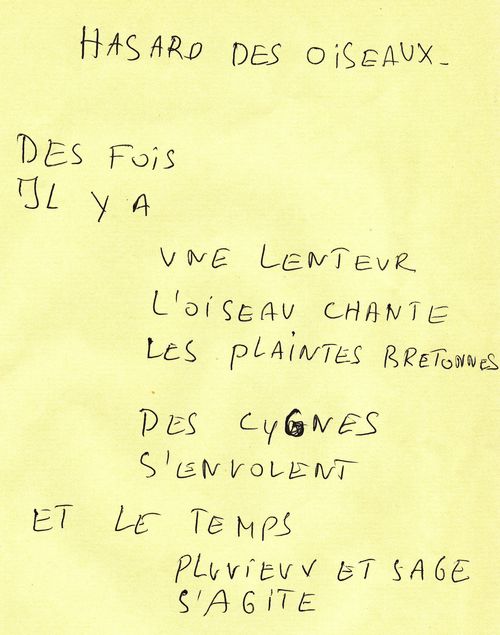 HASARD DES OISEAUX_
DES FOIS
IL Y A
UNE LENTEUR
L'OISEAU CHANTE
LES PLAINTES BRETONNES
DES CYGNES
S'ENVOLENT
ET LE TEMPS
PLUVIEUX ET SAGE
S'AGITE